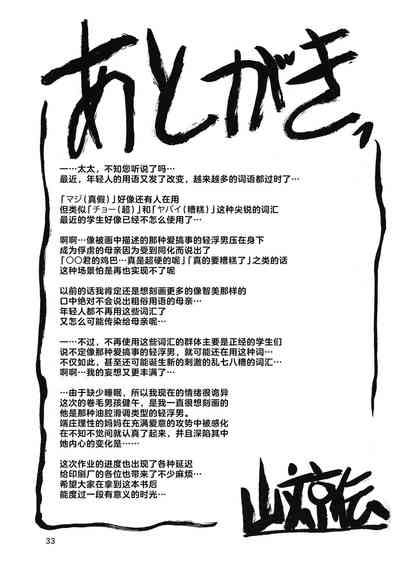 あとがき、
一…太太，不知您听说了吗…
最近，年轻人的用语又发了改变，越来越多的词语都过时了…
「マジ（真假）」好像还有人在用
但类似「チョー（超）」和「ヤバイ（糟糕）」这种尖锐的词汇
最近的学生好像已经不怎么使用了…
啊啊…像被画中描述的那种爱搞事的轻浮男压在身下
成为俘虏的母亲因为受到同化而说出了
「〇〇君的鸡巴…真是超硬的呢」「真的要糟糕了」之类的话
这种场景怕是再也实现不了呢
以前的话我肯定还是想刻画更多的像智美那样的
口中绝对不会说出粗俗用语的母亲…
年轻人都不再用这些词汇了
又怎么可能传染给母亲呢…
一…不过，不再使用这些词汇的群体主要是正经的学生们
说不定像那种爱搞事的轻浮男，就可能还在用这种词…
不仅如此，甚至还可能诞生新的刺激的乱七八糟的词汇…
啊…我的妄想又更丰满了…
…由于缺少睡眠，所以我现在的情绪很诡异
这次的卷毛男孩健午，是我一直很想刻画的
他是那种油腔滑调类型的轻浮男。
端庄理性的妈妈在充满爱意的攻势中被感化
在不知不觉间就认真了起来，并且深陷其中
她内心的变化是……
这次作业的进度也出现了各种延迟
给印刷厂的各位也带来了不少麻烦…
希望大家在拿到这本书后
能度过一段有意义的时光…
山文京伝
33